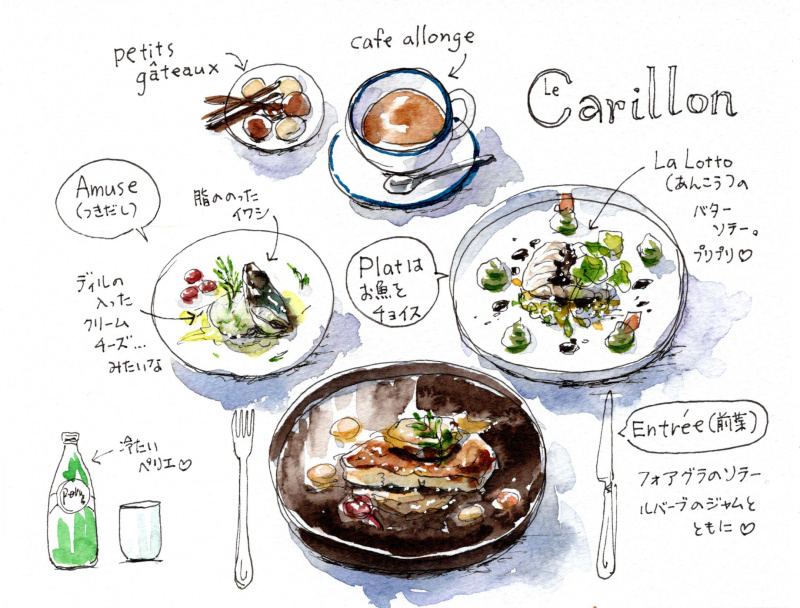 petits
gâteaux
cafe allongé
Le
Carillon
Amuse
(つきだし)
脂ののった
イワシ
ディルの
入った
クリーム
チーズ...
みたいな
Platは
お魚を
チョイス
La Lotto
(あんこう)の
バター
ソテー。
プリプリ♡
冷たい
ペリエ♡
Entrée(前菜)
フォアグラのソテー
ルバーブのジャムと
ともに♡